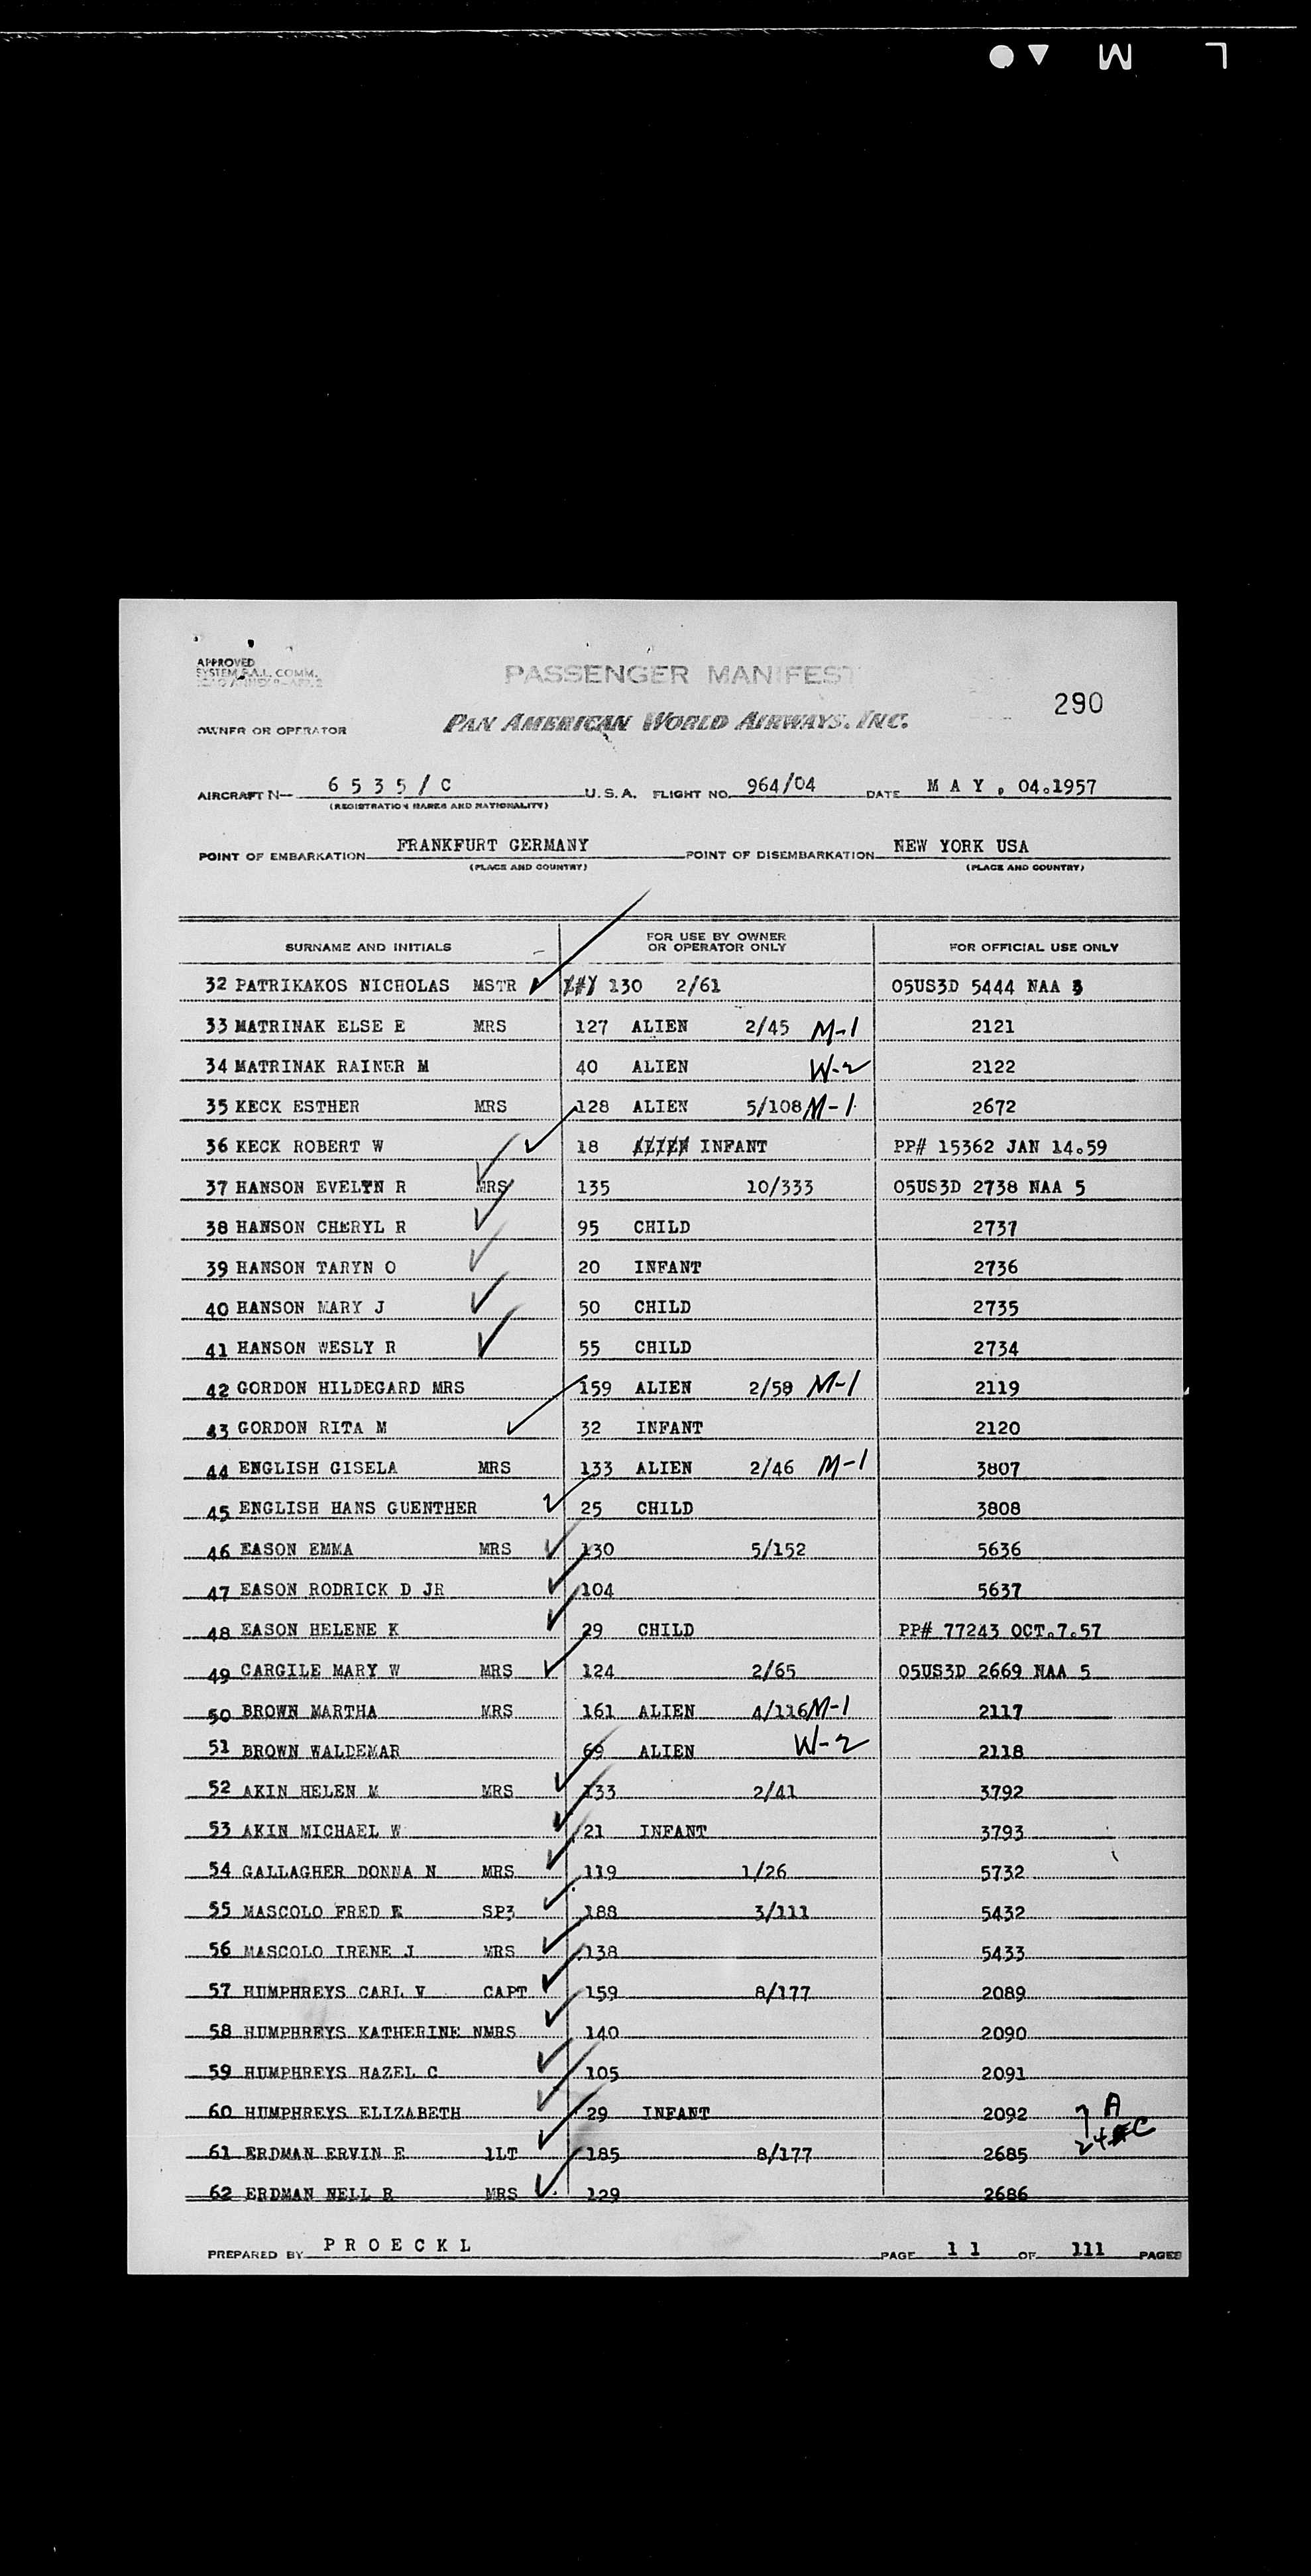 L M
APPROVED
SYSTEM P.A.L. COMM.
PASSENGER MANIFEST
290
OWNER OR OPERATOR PAN AMERICAN WORLD AIRWAYS, INC.
AIRCRAFT N— 6 5 3 5 / C U.S.A. FLIGHT NO. 964/04 DATE M A Y . 04.1957
(REGISTRATION MARKS AND NATIONALITY)
POINT OF EMBARKATION FRANKFURT GERMANY POINT OF DISEMBARKATION NEW YORK USA
(PLACE AND COUNTRY) (PLACE AND COUNTRY)
SURNAME AND INITIALS FOR USE BY OWNER OR OPERATOR ONLY FOR OFFICIAL USE ONLY
32 PATRIKAKOS NICHOLAS MSTR 130 2/61 05US3D 5444 NAA 3
33 MATRINAK ELSE E MRS 127 ALIEN 2/45 M-1 2121
34 MATRINAK RAINER M 40 ALIEN W-2 2122
35 KECK ESTHER MRS 128 ALIEN 5/108 M-1 2672
36 KECK ROBERT W 18 ALIEN INFANT PP# 15362 JAN 14.59
37 HANSON EVELYN R MRS 135 10/333 05US3D 2738 NAA 5
38 HANSON CHERYL R 95 CHILD 2737
39 HANSON TARYN O 20 INFANT 2736
40 HANSON MARY J 50 CHILD 2735
41 HANSON WESLY R 55 CHILD 2734
42 GORDON HILDEGARD MRS 159 ALIEN 2/58 M-1 2119
43 GORDON RITA M 32 INFANT 2120
44 ENGLISH GISELA MRS 133 ALIEN 2/46 M-1 3807
45 ENGLISH HANS GUENTHER 25 CHILD 3808
46 EASON EMMA MRS 130 5/152 5636
47 EASON RODRICK D JR 104 5637
48 EASON HELENE K 29 CHILD PP# 77243 OCT.7.57
49 CARGILE MARY W MRS 124 2/65 05US3D 2669 NAA 5
50 BROWN MARTHA MRS 161 ALIEN 4/116 M-1 2117
51 BROWN WALDEMAR 69 ALIEN W-2 2118
52 AKIN HELEN M MRS 133 2/41 3792
53 AKIN MICHAEL W 21 INFANT 3793
54 GALLAGHER DONNA N MRS 119 1/26 5732
55 MASCOLO FRED E SP3 188 3/111 5432
56 MASCOLO IRENE J MRS 138 5433
57 HUMPHREYS CARL V CAPT 159 8/177 2089
58 HUMPHREYS KATHERINE NMRS 140 2090
59 HUMPHREYS HAZEL C 105 2091
60 HUMPHREYS ELIZABETH 29 INFANT 2092 7 A
61 ERDMAN ERVIN E 1LT 185 8/177 2685 24 C
62 ERDMAN NELL R MRS 129 2686
PREPARED BY P R O E C K L PAGE 1 1 OF 111 PAGES